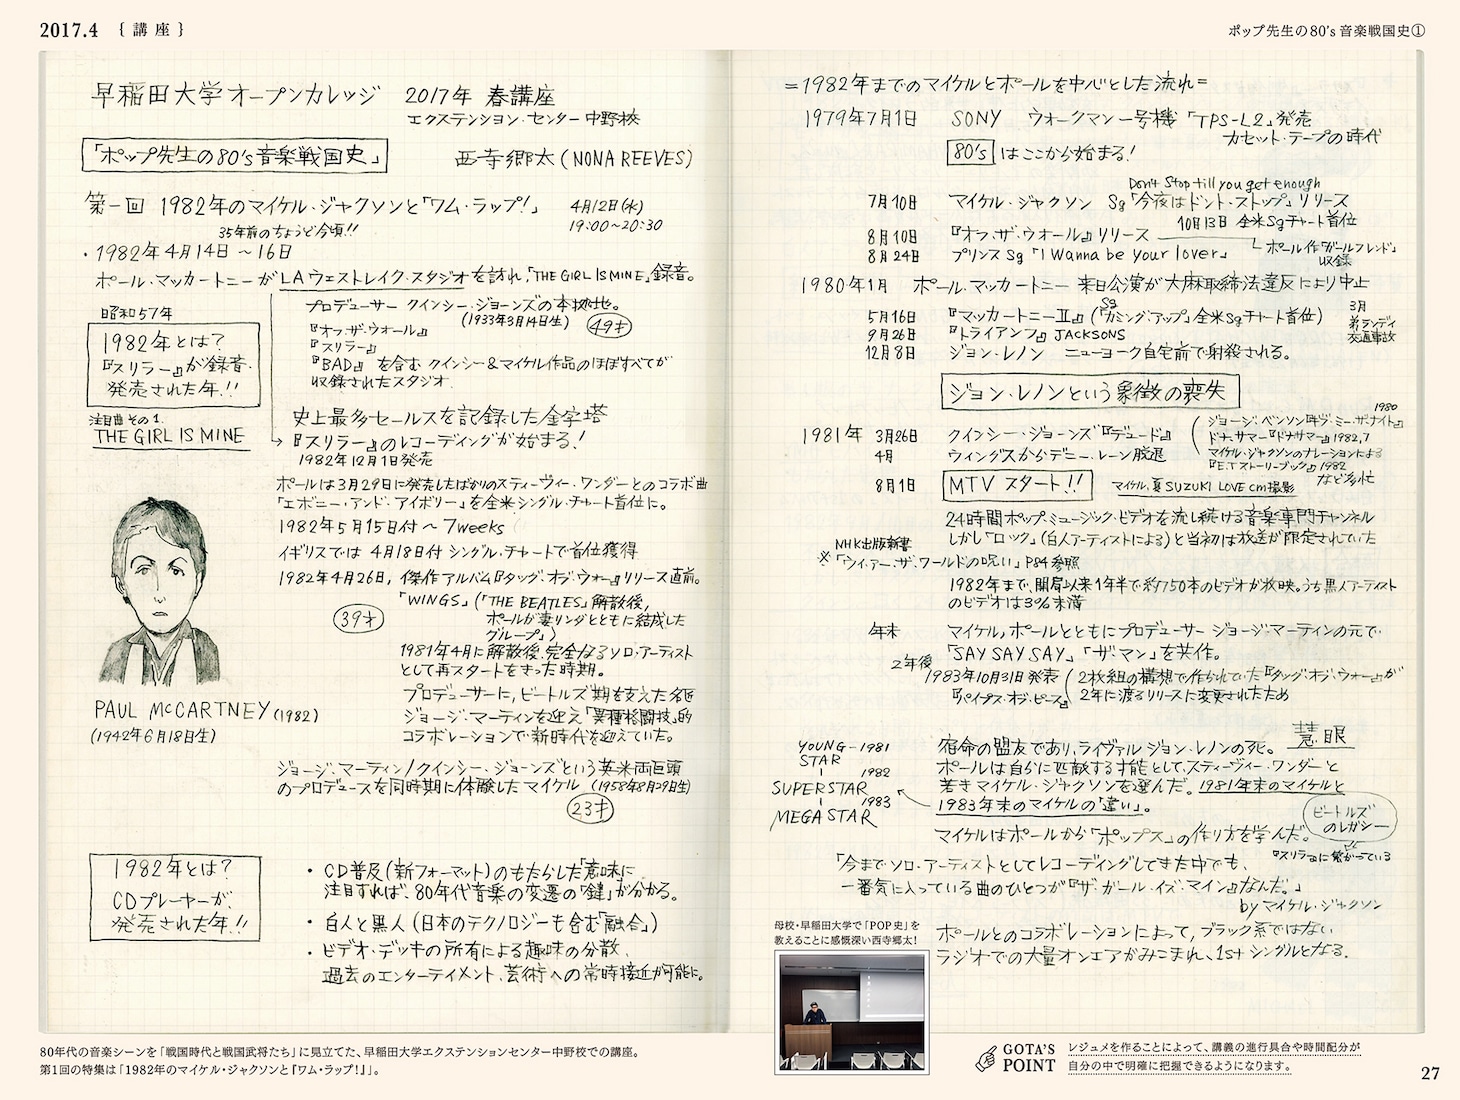 2017.4 {講座}
ポップ先生の80's音楽戦国史①
早稲田大学オープンカレッジ 2017年 春講座
エクステンション・センター中野校
「ポップ先生の80's音楽戦国史」 西寺郷太(NONA REEVES)
第一回 1982年のマイケル・ジャクソンと「ワム・ラップ!」 4月12日(水)
19:00~20:30
35年前のちょうど今頃!!
・1982年4月14日~16日
ポール・マッカートニーがLAウェストレイク・スタジオを訪れ、「THE GIRL IS MINE」録音。
昭和57年
1982年とは?
『スリラー』が録音・
発売された年!!
プロデューサー クインシー・ジョーンズの本拠地。
(1933年3月14日生) 49才
『オフ・ザ・ウォール』
『スリラー』
『BAD』を含む クインシー&マイケル作品のほぼすべてが
収録されたスタジオ.
注目曲その1.
THE GIRL IS MINE
史上最多セールスを記録した金字塔
『スリラー』のレコーディングが始まる!
1982年12月1日発売
ポールは3月29日に発売したばかりのスティーヴィー・ワンダーとのコラボ曲
「エボニー・アンド・アイボリー」を全米シングル・チャート首位に。
1982年5月15日付~7weeks
イギリスでは 4月18日付 シングル・チャートで首位獲得
1982年4月26日, 傑作アルバム『タッグ・オブ・ウォー』リリース直前。
39才
「WINGS」(「THE BEATLES」解散後,
ポールが妻リンダとともに結成した
グループ」)
1981年4月に解散後、完全なるソロ・アーティスト
として再スタートをきった時期。
PAUL McCARTNEY(1982)
(1942年6月18日生)
プロデューサーに, ビートルズ期を支えた名匠
ジョージ・マーティンを迎え「異種格闘技」的
コラボレーションで新時代を迎えていた。
ジョージ・マーティン/クインシー・ジョーンズという英米両巨頭
のプロデュースを同時期に体験したマイケル (1958年8月29日生)
23才
1982年とは?
CDプレーヤーが,
発売された年!!
・CD普及(新フォーマット)のもたらした「意味に
注目すれば、80年代音楽の変遷の「鍵」が分かる。
・白人と黒人(日本のテクノロジーも含む「融合」)
・ビデオ・デッキの所有による趣味の分散,
過去のエンターテイメント, 芸術への常時接近が可能に。
=1982年までのマイケルとポールを中心とした流れ=
1979年7月1日 SONY ウォークマン一号機「TPS-L2」発売
カセット・テープの時代
80's はここから始まる!
Don't Stop till you get enough
7月10日 マイケル・ジャクソン Sg「今夜はドント・ストップ」リリース
10月13日 全米Sgチャート首位
8月10日 『オフ・ザ・ウォール』リリース ポール作「ガールフレンド」
収録
8月24日 プリンス Sg「I Wanna be your lover」
1980年1月 ポール・マッカートニー 来日公演が大麻取締法違反により中止
5月16日 『マッカートニーⅡ』(Sg「カミング・アップ」全米Sgチャート首位)
9月26日 『トライアンフ』JACKSONS
3月
弟ランディ
交通事故
12月8日 ジョン・レノン ニューヨーク自宅前で射殺される。
ジョン・レノンという象徴の喪失
1981年 3月26日 クインシー・ジョーンズ『デュード』
4月 ウィングスからデニー・レーン脱退
1980
(ジョージ・ベンソン『ギヴ・ミー・ザ・ナイト』
ドナ・サマー『ドナサマー』1982,7
マイケル・ジャクソンのナレーションによる
『E.T ストーリーブック』1982
など多忙
8月1日 MTV スタート!! マイケル, 夏 SUZUKI LOVE cm撮影
24時間ポップ・ミュージック・ビデオを流し続ける音楽専門チャンネル
しかし「ロック」(白人アーティストによる)と当初は放送が限定されていた
NHK出版新書
※「ウィ・アー・ザ・ワールドの呪い」P84参照
1982年まで, 開局以来1年半で約750本のビデオが放映。うち黒人アーティスト
のビデオは3%未満
年末 マイケル, ポールとともにプロデューサー ジョージ・マーティンの元で
「SAY SAY SAY」「ザ・マン」を共作。
2年後
1983年10月31日発表 (2枚組の構想で作られていた『タッグ・オブ・ウォー』が
『パイプス・オブ・ピース』 2年に渡るリリースに変更されたため
YOUNG - 1981
STAR
1982
SUPERSTAR
1983
MEGA STAR
宿命の盟友であり, ライヴァル ジョン・レノンの死。 慧眼
ポールは自分に匹敵する才能として, スティーヴィー・ワンダーと
若きマイケル・ジャクソンを選んだ。1981年末のマイケルと
1983年末のマイケルの「違い」。
ビートルズ
のレガシー
『スリラー』に繋がっている
マイケルはポールから「ポップス」の作り方を学んだ。
「今までソロ・アーティストとしてレコーディングしてきた中でも,
一番気に入っている曲のひとつが『ザ・ガール・イズ・マイン』なんだ。」
by マイケル・ジャクソン
ポールとのコラボレーションによって, ブラック系ではない
ラジオでの大量オンエアがみこまれ, 1st シングルとなる.
母校・早稲田大学で「POP史」を
教えることに感慨深い西寺郷太!
80年代の音楽シーンを「戦国時代と戦国武将たち」に見立てた、早稲田大学エクステンションセンター中野校での講座。
第1回の特集は「1982年のマイケル・ジャクソンと『ワム・ラップ!』」。
GOTA'S
POINT
レジュメを作ることによって、講義の進行具合や時間配分が
自分の中で明確に把握できるようになります。
27